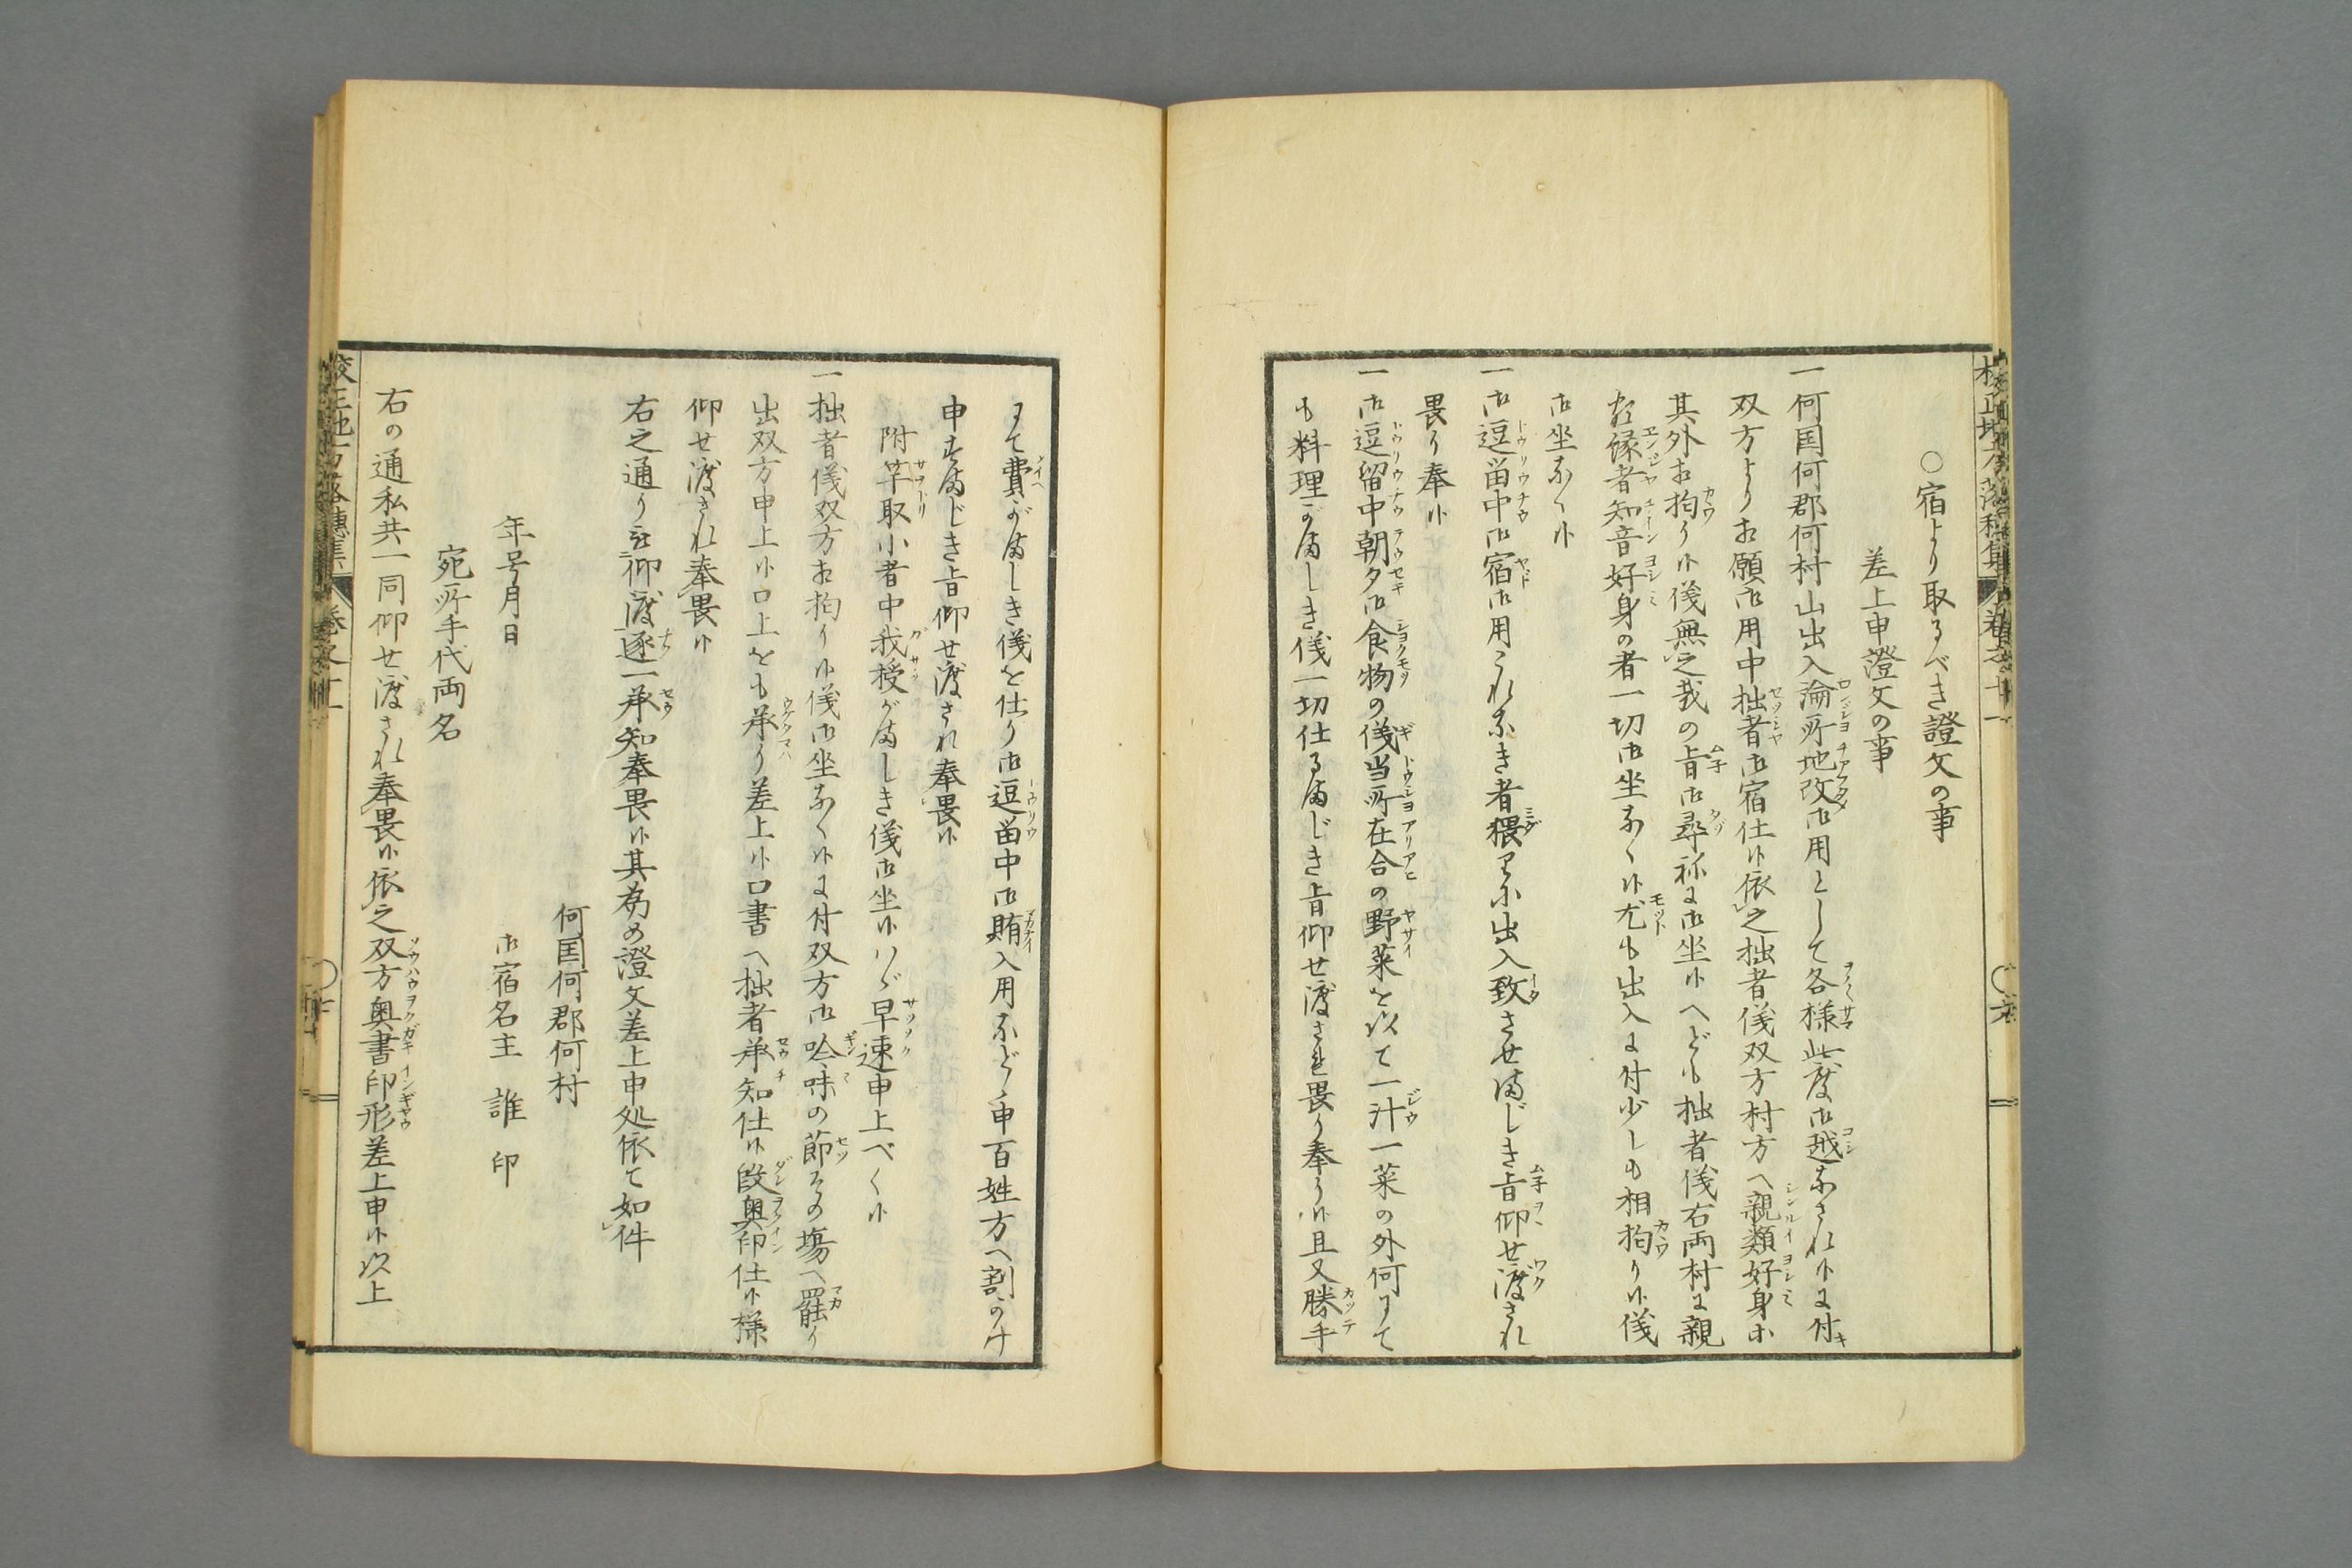 ○宿より取るべき證文の事
差上申證文の事
一何国何郡何村山出入論所地改御用として各様此度御越なされ候に付
双方より相願御用中拙者御宿仕候依之拙者儀双方村方へ親類好身等
其外相拘り候儀無之哉の旨御尋ねに御坐候へども拙者儀右両村に親
類縁者知音好身の者一切御坐なく候尤も出入に付少しも相拘り候儀
御坐なく候
一御逗留中御宿御用これなき者猥りに出入致させまじき旨仰せ渡され
畏り奉候
一御逗留中朝夕御食物の儀当所在合の野菜を以て一汁一菜の外何にて
も料理がましき儀一切仕るまじき旨仰せ渡され畏り奉り候且又勝手
にて費がましき儀を仕り御逗留中御賄入用などゝ申百姓方へ割かけ
申すまじき旨仰せ渡され奉畏候
附竿取小者中我授がましき儀御坐候ハヾ早速申上べく候
一拙者儀双方相拘り候儀御坐なく候に付双方御吟味の節その場へ罷り
出双方申上候口上をも承り差上候口書へ拙者承知仕候段奥印仕候様
仰せ渡され奉畏候
右之通り被仰渡逐一承知奉畏候其為の證文差上申処依て如件
何国何郡何村
年号月日 御宿名主 誰 印
宛所手代両名
右の通私共一同仰せ渡され奉畏候依之双方奥書印形差上申候以上
校正地方落穂集 巻之十一 ○六
校正地方落穂集 巻之十一 ○七